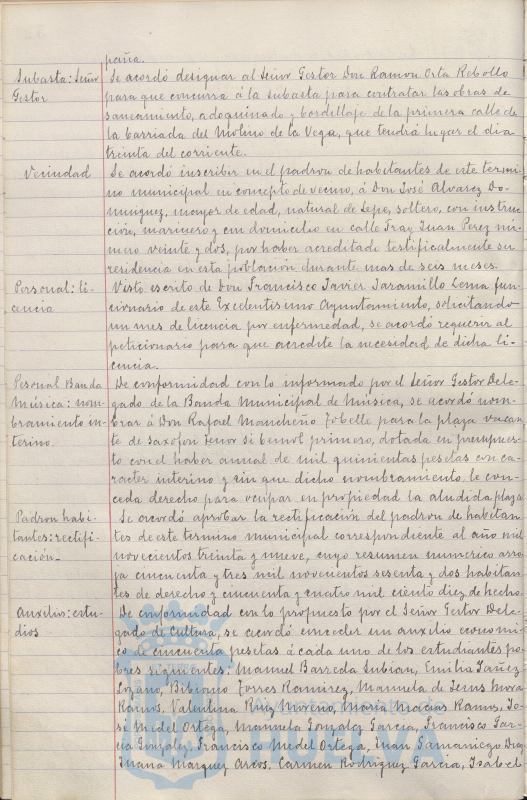 paña.
Subasta: Señor Se acordó designar al Señor Gestor Don Ramon Orta Rebollo
Gestor para que concurra á la subasta para contratar las obras de
saneamiento, adoquinado y bordillaje de la primera calle de
la barriada del Molino de la Vega, que tendrá lugar el dia
treinta del corriente.
Vecindad Se acordó inscribir en el padron de habitantes de este termi
no municipal en concepto de vecino, á Don José Alvarez Do-
minguez, mayor de edad, natural de Lepe, soltero, con instruc
ción, marinero y con domicilio en calle Fray Juan Perez nú-
mero veinte y dos, por haber acreditado testificalmente su
residencia en esta población durante mas de seis meses.
Personal: li- Visto escrito de Don Francisco Javier Jaramillo Lema fun-
cencia cionario de este Excelentisimo Ayuntamiento, solicitando
un mes de licencia por enfermedad, se acordó requerir al
peticionario para que acredite la necesidad de dicha li-
cencia.
Personal Banda De conformidad con lo informado por el Señor Gestor Dele-
Música: nom- gado de la Banda Municipal de Música, se acordó nom-
bramiento in- brar á Don Rafael Mancheño para la plaza vacan
terino. te de saxofon tenor si bemol primero, dotada en presupues-
to con el haber anual de mil quinientas pesetas con ca-
racter interino y sin que dicho nombramiento le con-
ceda derecho para ocupar en propiedad la aludida plaza
Padron habi- Se acordó aprobar la rectificación del padron de habitan
tantes: rectifi- tes de este termino municipal correspondiente al año mil
cación_ novecientos treinta y nueve, cuyo resumen numerico arro
ja cincuenta y tres mil novecientos sesenta y dos habitan
tes de derecho y cincuenta y cuatro mil ciento diez de hecho.
Auxilio: estu- De conformidad con lo propuesto por el Señor Gestor Dele-
dios gado de Cultura, se acordó conceder un auxilio economi
co de cincuenta pesetas á cada uno de los estudiantes po-
bres siguientes: Manuel Barreda Subian, Emilia Yañez
Lozano, Bibiano Torres Ramirez, Manuela de Jesus Mora
Ramos, Valentina Ruiz Moreno, Maria Macias Ramos, Jo-
sé Medel Ortega, Manuela Gonzalez Garcia, Francisco Gar-
cia Gonzalez, Francisco Medel Ortega, Juan Samaniego Diaz
Juana Marquez Arcos, Carmen Rodriguez Garcia, Isabel